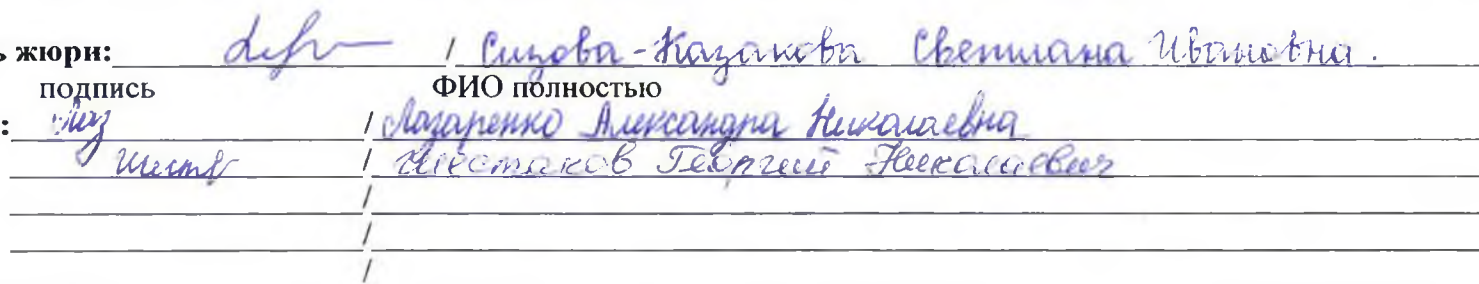 ь жюри: / Сизова-Казакова Светлана Ивановна.
подпись ФИО полностью
: Лаз / Лазаренко Александра Николаевна
Шест / Шестаков Георгий Николаевич
/
/
/